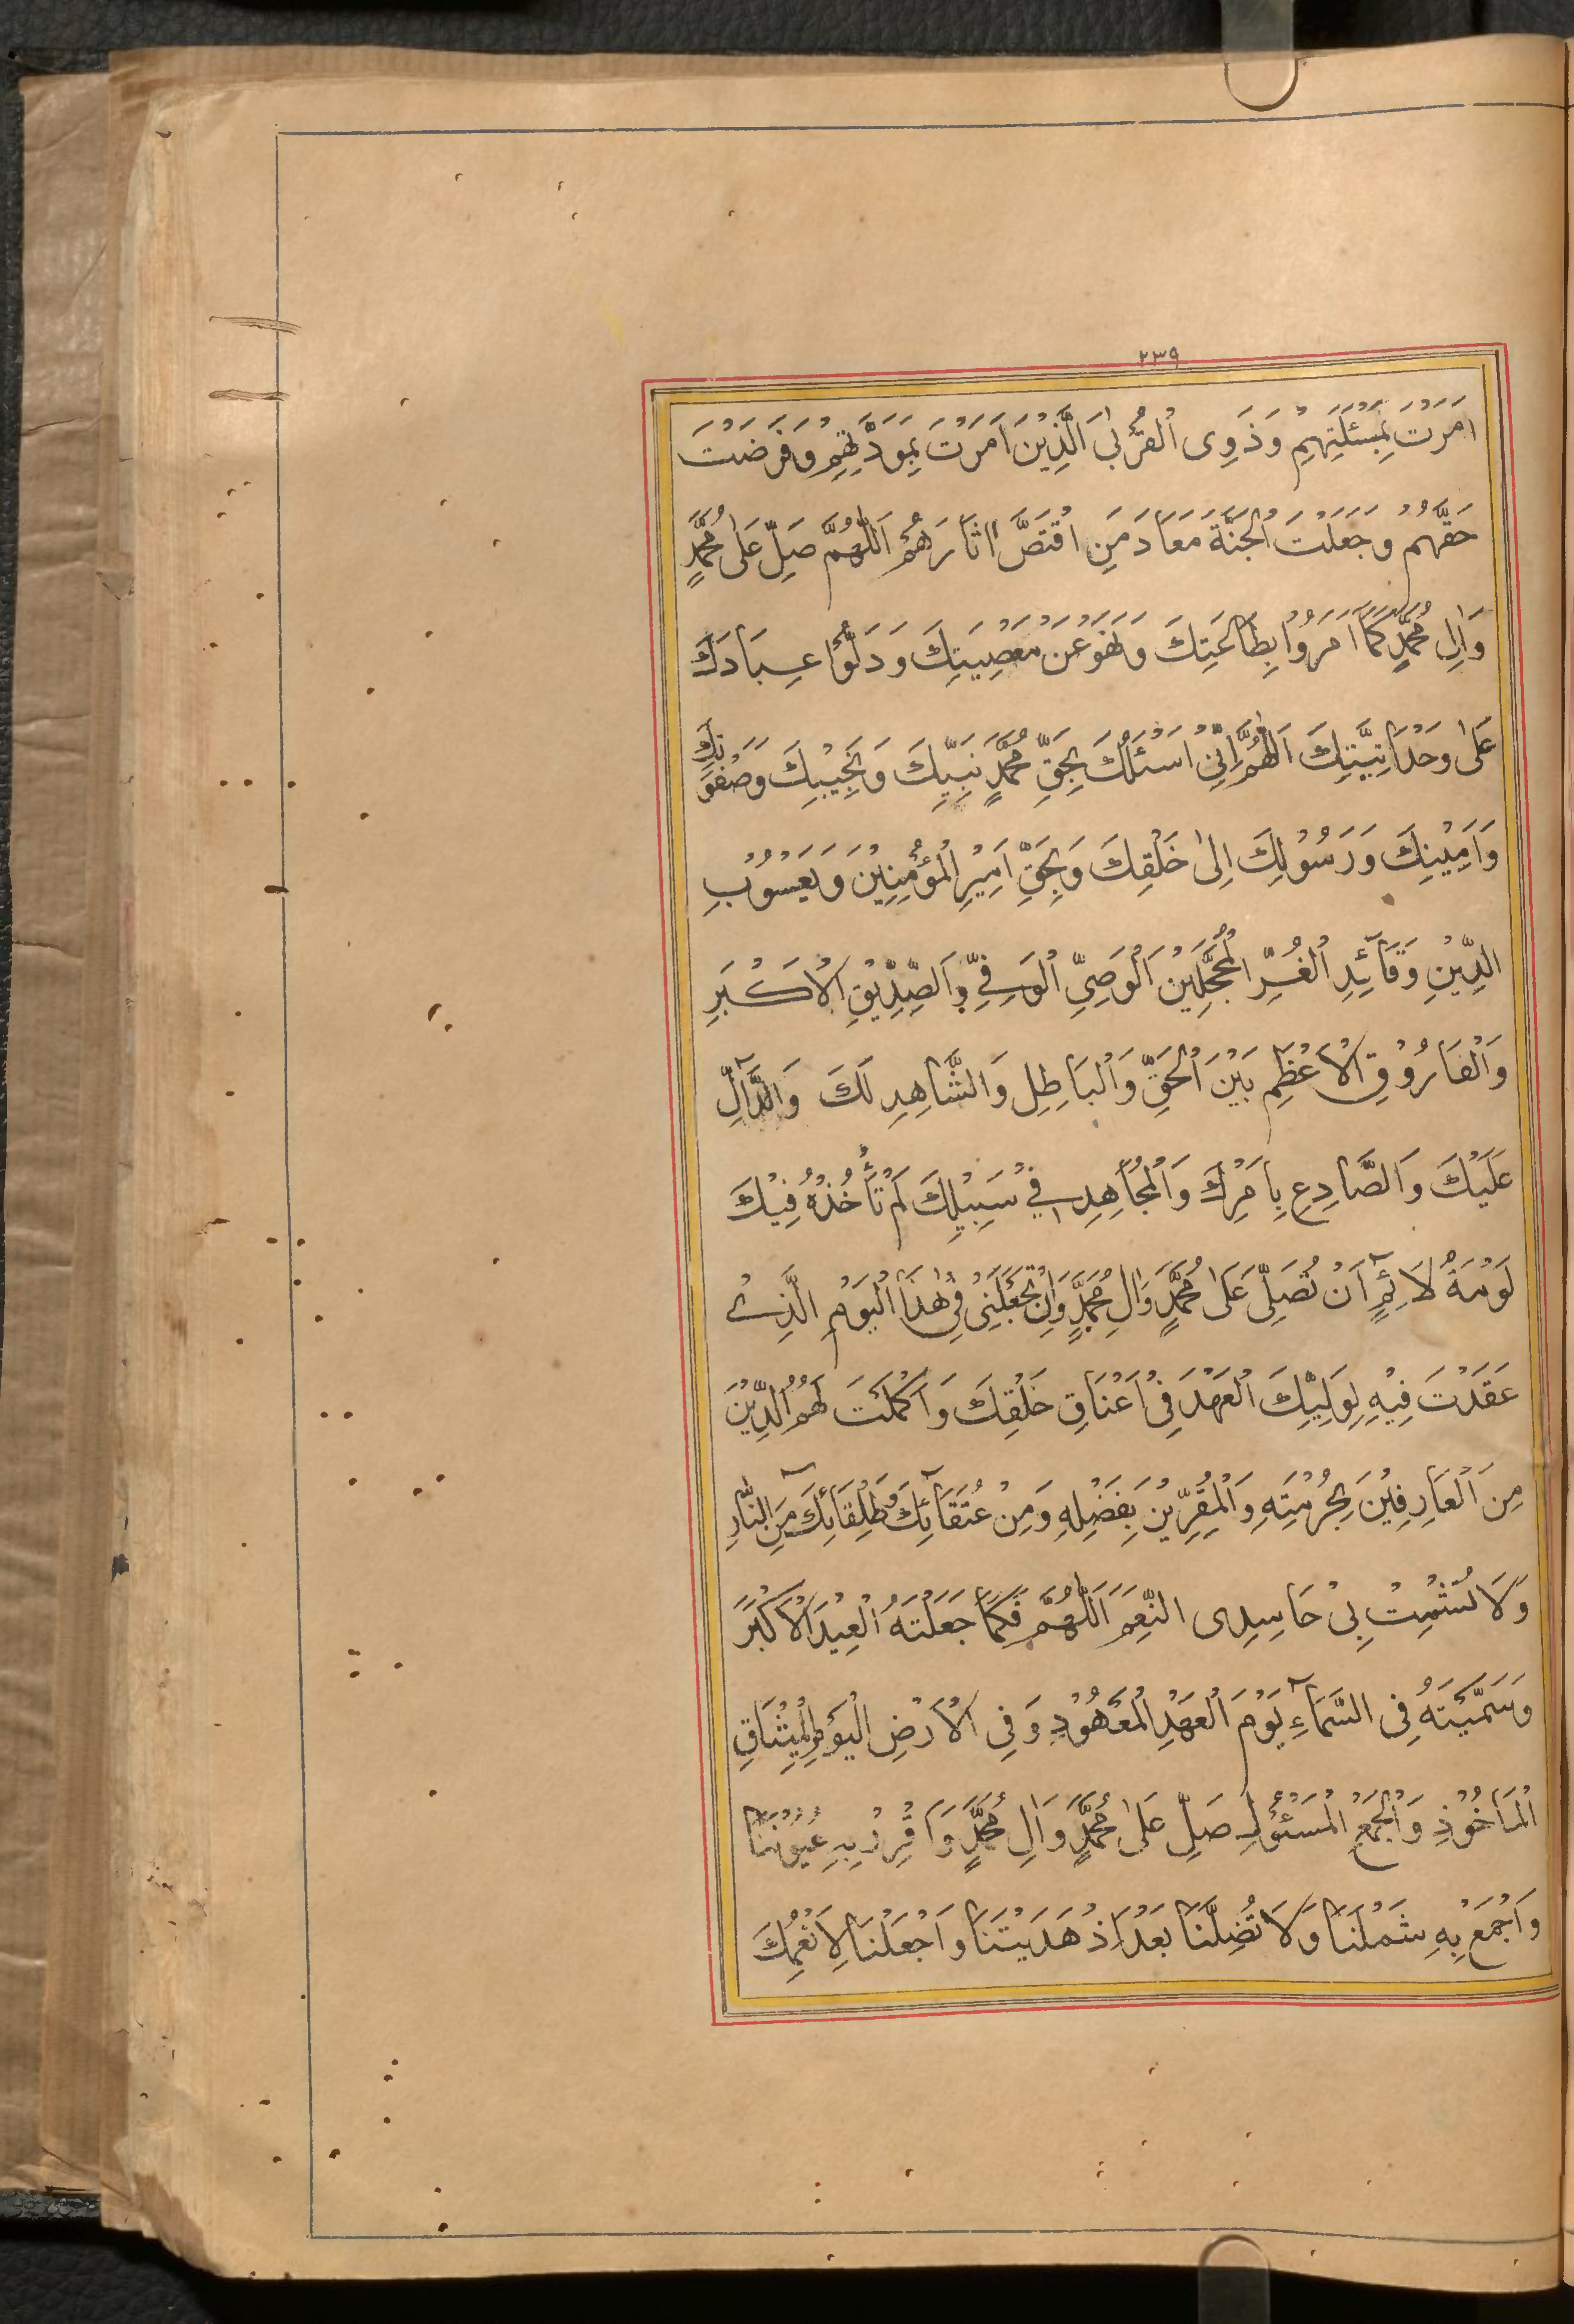 ٢٣٩
اَمَرْتَ بِمَسْئَلَتِهِمْ وَذَوِى الْقُرْبىٰ الَّذِيْنَ اَمَرْتَ بِمَوَدَّتِهِمْ وَفَرَضْتَ
حَقَّهُمْ وَجَعَلْتَ الْجَنَّةَ مَعَادَ مَنِ اقْتَصَّ اٰثَارَهُمْ اَللّٰهُمَّ صَلِّ عَلىٰ مُحَمَّدٍ
وَاٰلِ مُحَمَّدٍ كَمَا اَمَرُوْا بِطَاعَتِكَ وَنَهَوْ عَنْ مَعْصِيَتِكَ وَدَلُّوْا عِبَادَكَ
عَلىٰ وَحْدَانِيَّتِكَ اَللّٰهُمَّ اِنِّىْ اَسْئَلُكَ بِحَقِّ مُحَمَّدٍ نَبِيِّكَ وَنَجِيْبِكَ وَصَفْوَتِكَ
وَاَمِيْنِكَ وَرَسُوْلِكَ اِلىٰ خَلْقِكَ وَبِحَقِّ اَمِيْرِ الْمُؤْمِنِيْنَ وَيَعْسُوْبِ
الدِّيْنِ وَقَآئِدِ الْغُرِّ الْمُحَجَّلِيْنَ اَلْوَصِىِّ الْوَفِىِّ وَالصِّدِّيْقِ الْاَكْبَرِ
وَالْفَارُوْقِ الْاَعْظَمِ بَيْنَ الْحَقِّ وَالْبَاطِلِ وَالشَّاهِدِ لَكَ وَالدَّآلِّ
عَلَيْكَ وَالصَّادِعِ بِاَمْرِكَ وَالْمُجَاهِدِ فِىْ سَبِيْلِكَ لَمْ تَأْخُذْهُ فِيْكَ
لَوْمَةُ لَآئِمٍ اَنْ تُصَلِّىَ عَلىٰ مُحَمَّدٍ وَاٰلِ مُحَمَّدٍ وَاَنْ تَجْعَلَنِىْ فِىْ هٰذَا الْيَوْمِ الَّذِىْ
عَقَدْتَ فِيْهِ لِوَلِيِّكَ الْعَهْدَ فِىْ اَعْنَاقِ خَلْقِكَ وَاَكْمَلْتَ لَهُمُ الدِّيْنَ
مِنَ الْعَارِفِيْنَ بِحُرْمَتِهِ وَالْمُقِرِّيْنَ بِفَضْلِهِ وَمِنْ عُتَقَآئِكَ وَطُلَقَآئِكَ مِنَ النَّارِ
وَلَا تُشْمِتْ بِىْ حَاسِدِى النِّعَمِ اَللّٰهُمَّ فَكَمَا جَعَلْتَهُ الْعِيْدَ الْاَكْبَرَ
وَسَمَّيْتَهُ فِى السَّمَآءِ يَوْمَ الْعَهْدِ الْمَعْهُوْدِ وَفِى الْاَرْضِ الْيَوْمِ الْمِيْثَاقِ
الْمَاخُوْذِ وَالْجَمْعِ الْمَسْئُوْلِ صَلِّ عَلىٰ مُحَمَّدٍ وَاٰلِ مُحَمَّدٍ وَاَقْرِرْ بِهِ عُيُوْنَنَا
وَاَجْمَعْ بِهِ شَمْلَنَا وَلَا تُضِلَّنَا بَعْدَ اِذْ هَدَيْتَنَا وَاَجْعَلْنَا لِاَنْعُمِكَ